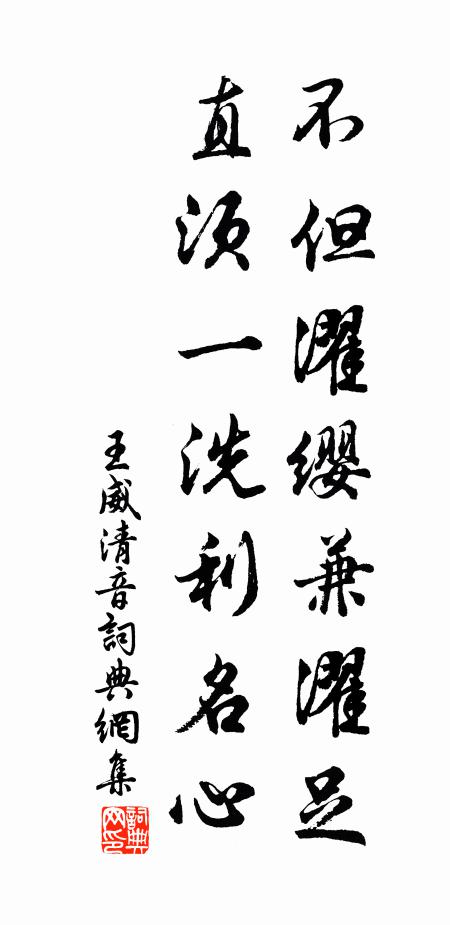 不但濯缨兼濯足
直须一洗利名心
王威清音詞典網集
詞典网印